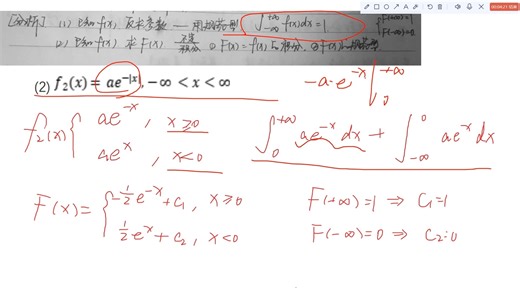 [分析] (1) 已知f(x) 反求参数 — 用规范型 ∫_{-∞}^{+∞} f(x)dx = 1
F(+∞)=1
F(-∞)=0
(2) 已知f(x) 求F(x)
(2) f₂(x) = ae^{-|x|}, -∞ < x < ∞
-a·e^{-x} |_0^{+∞}
f₂(x) { ae^{-x}, x≥0
ae^{x}, x<0
∫_0^{+∞} ae^{-x}dx + ∫_{-∞}^0 ae^{x}dx
F(x) = { -½e^{-x}+c₁, x≥0
½e^{x}+c₂, x<0
F(+∞)=1 ⇒ C₁=1
F(-∞)=0 ⇒ C₂=0